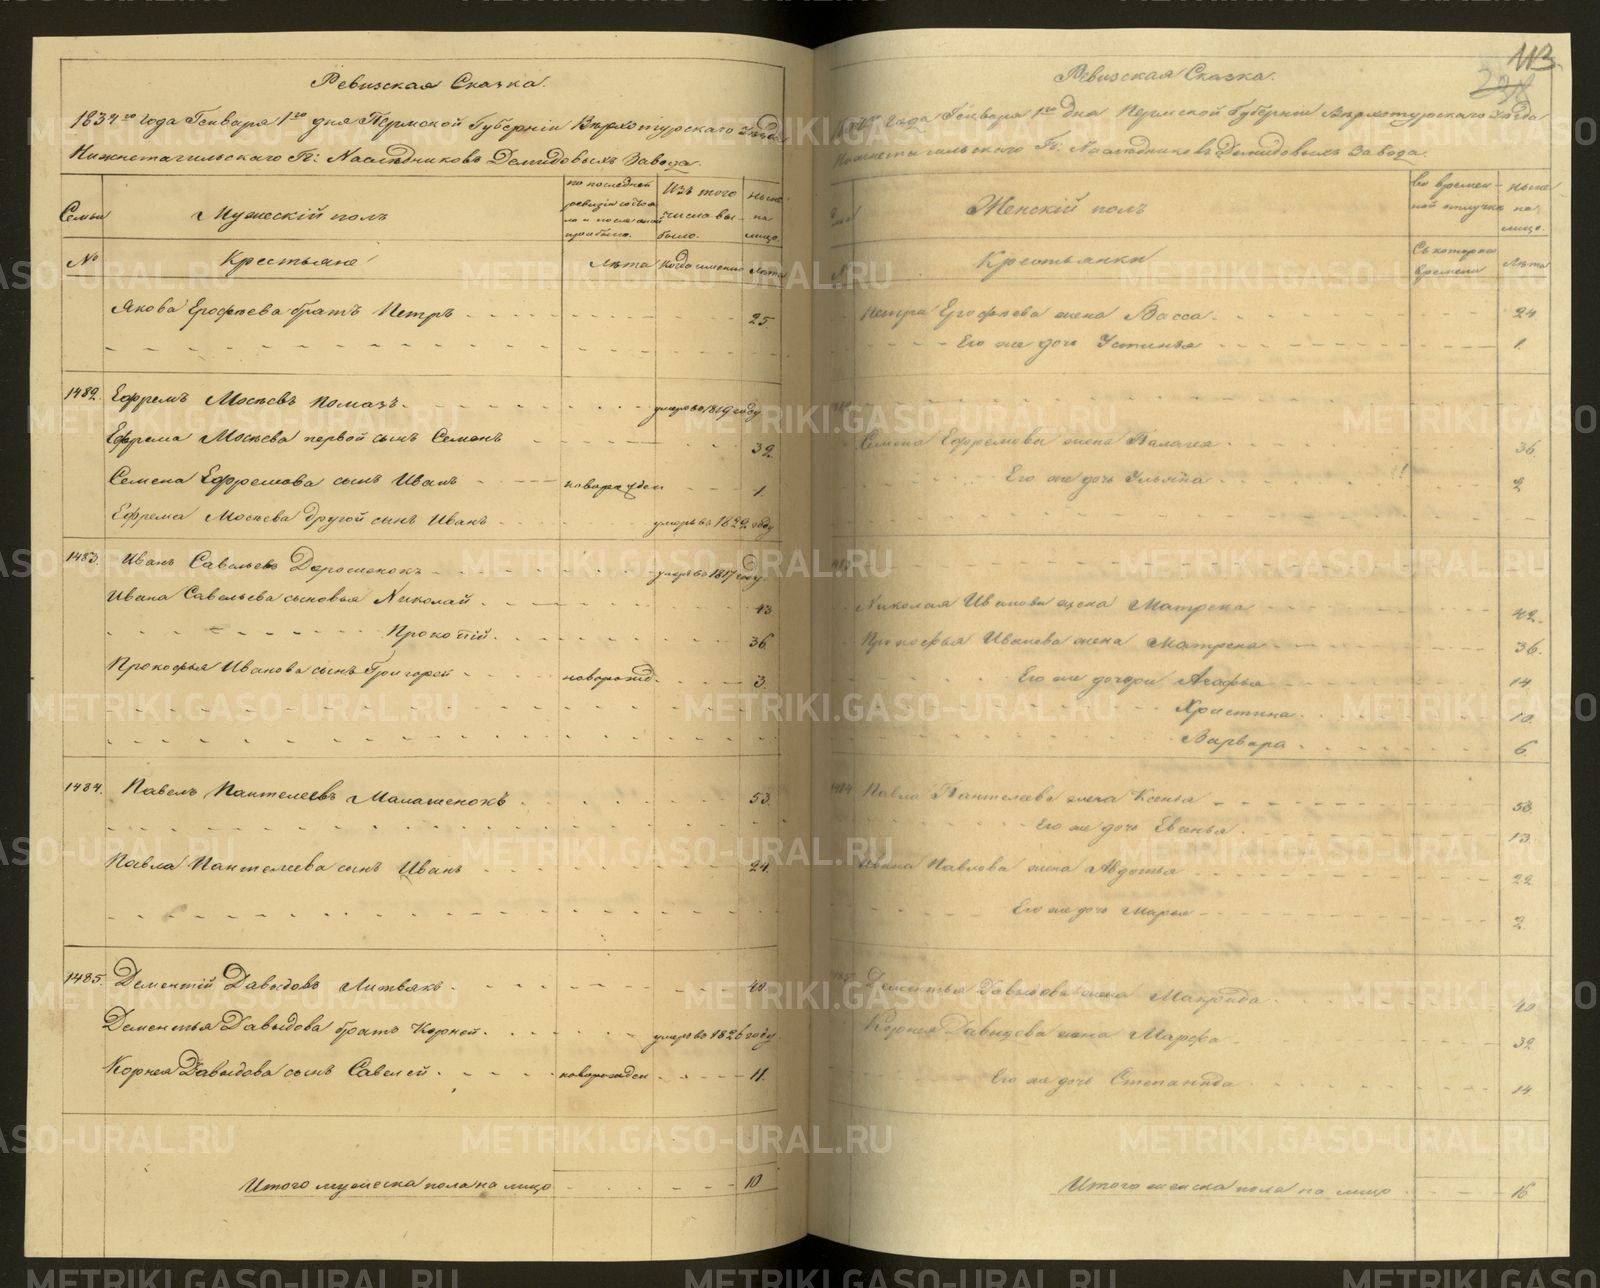 Ревизская Сказка.
1834го года Генваря 1го дня Пермской Губернiи Верхотурскаго Уезда
Нижнетагильскаго Гг: Наследниковъ Демидовыхъ Завода.
Семьи
Мужескiй полъ
по последней ревизiи состояло и после оной прибыло.
Изъ того числа выбыло.
ныне на лицо.
№
Крестьяне
Лета
Когда именно
Лета
Якова Ерофеева братъ Петръ 25
1482. Ефремъ Мосеевъ Помазъ. умеръ въ 1819 году
Ефрема Мосеева первой сынъ Семенъ 39
Семена Ефремова сынъ Иванъ новорожден 1.
Ефрема Мосеева другой сынъ Иванъ умеръ въ 1822 году
1483. Иванъ Савельевъ Дорошенокъ умеръ въ 1817 году.
Ивана Савельева сыновья Николай 43
Прокопiй. 36
Прокофья Иванова сынъ Григорей новорожд. 3.
1484. Павелъ Пантелеевъ Малашенокъ 53.
Павла Пантелеева сынъ Иванъ 24.
1485. Дементiй Давыдовъ Литвякъ 40.
Дементья Давыдова братъ Корней. умеръ въ 1826 году
Корнея Давыдова сынъ Савелей новорожден 11.
Итого мужеска пола на лицо 10
113.
Ревизская Сказка.
1834го года Генваря 1го дня Пермской Губернiи Верхотурскаго Уезда
Нижнетагильскаго Гг: Наследниковъ Демидовыхъ Завода.
Женскiй полъ
во временной отлучке
ныне на лицо.
Крестьянки
Съ котораго времени
Лета
Петра Ерофеева жена Васса. 24
Его же дочь Устинья 1.
Семена Ефремова жена Палагея 36.
Его же дочь Ульяна 2
Николая Иванова жена Матрена 42.
Прокофья Иванова жена Матрена 36.
Его же дочери Агафья 14
Христина 10.
Варвара 6
1484 Павла Пантелеева жена Ксенья 53
Его же дочь Евгенья 13.
Ивана Павлова жена Авдотья 22
Его же дочь Марья 2.
Дементья Давыдова жена Макрида 40
Корнея Давыдова жена Марфа 32
Его же дочь Степанида 14
Итого женска пола на лицо 16
METRIKI.GASO-URAL.RU